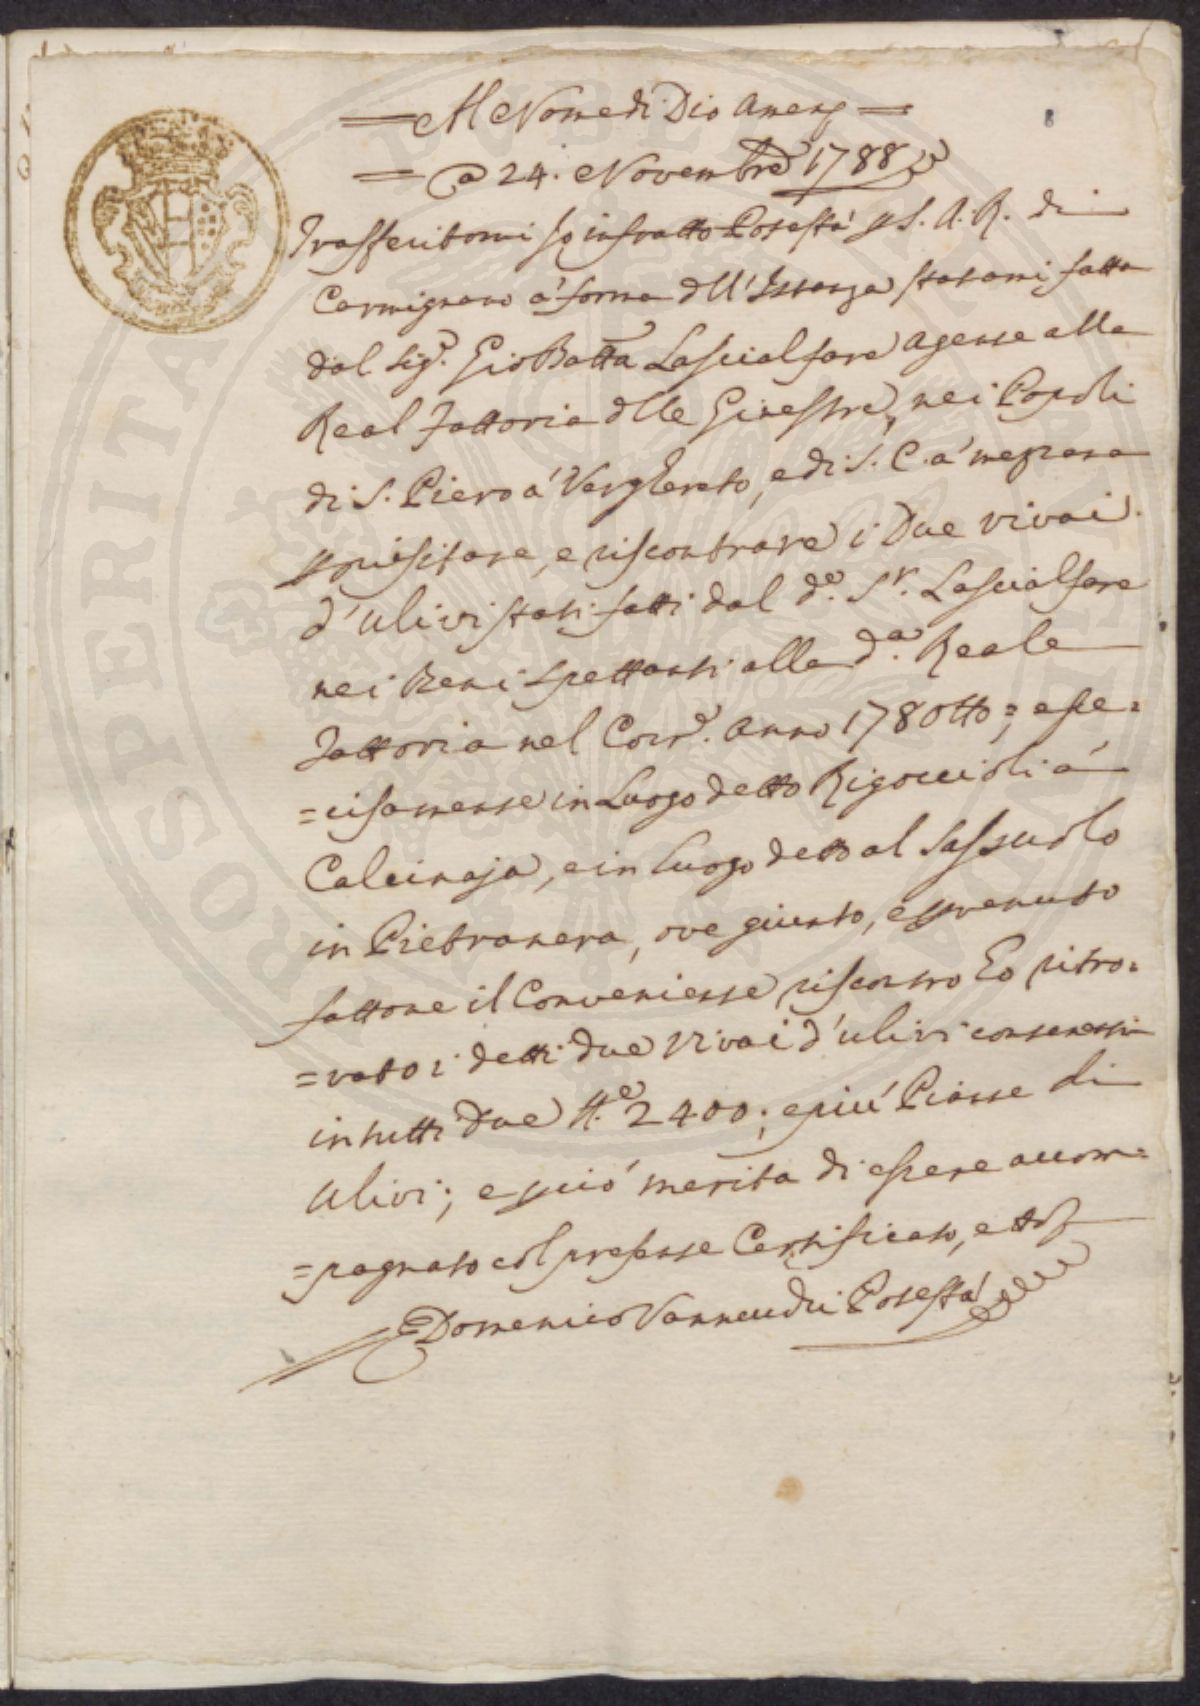 Al Nome di Dio Amen
a 24. Novembre 1788
Trasferitomi Io infratto Potestà p S. A. R. di
Carmignano a' forma dll' Istanza statami fatta
dal Sig.e Gio Batta Lascialfare Agente alla
Real Fattoria dlle Ginestre, nei Popoli
di S. Piero a' Verghereto, e di S. C. a' mezzana
p visitare, e riscontrare i Due vivai
d'ulivi stati fatti dal d.o S.r Lascialfare
nei Beni spettanti alla d.a Reale
Fattoria nel Corr.e Anno 178otto; e pre=
=cisamente in Luogo detto Rigoccioli à
Calcinaja, e in Luogo detto al Sassuolo
in Pietranera, ove giunto, e pvenuto
fattone il Conveniente riscontro Eo ritro=
=vato i detti due Vivai d'ulivi contenenti
in tutti due N.o 2400; e più Piante di
Ulivi; e pciò merita di essere accom=
=pagnato col presente Certificato, e
Domenico Vannucchi Potestà
ROSPERITA PUBLI